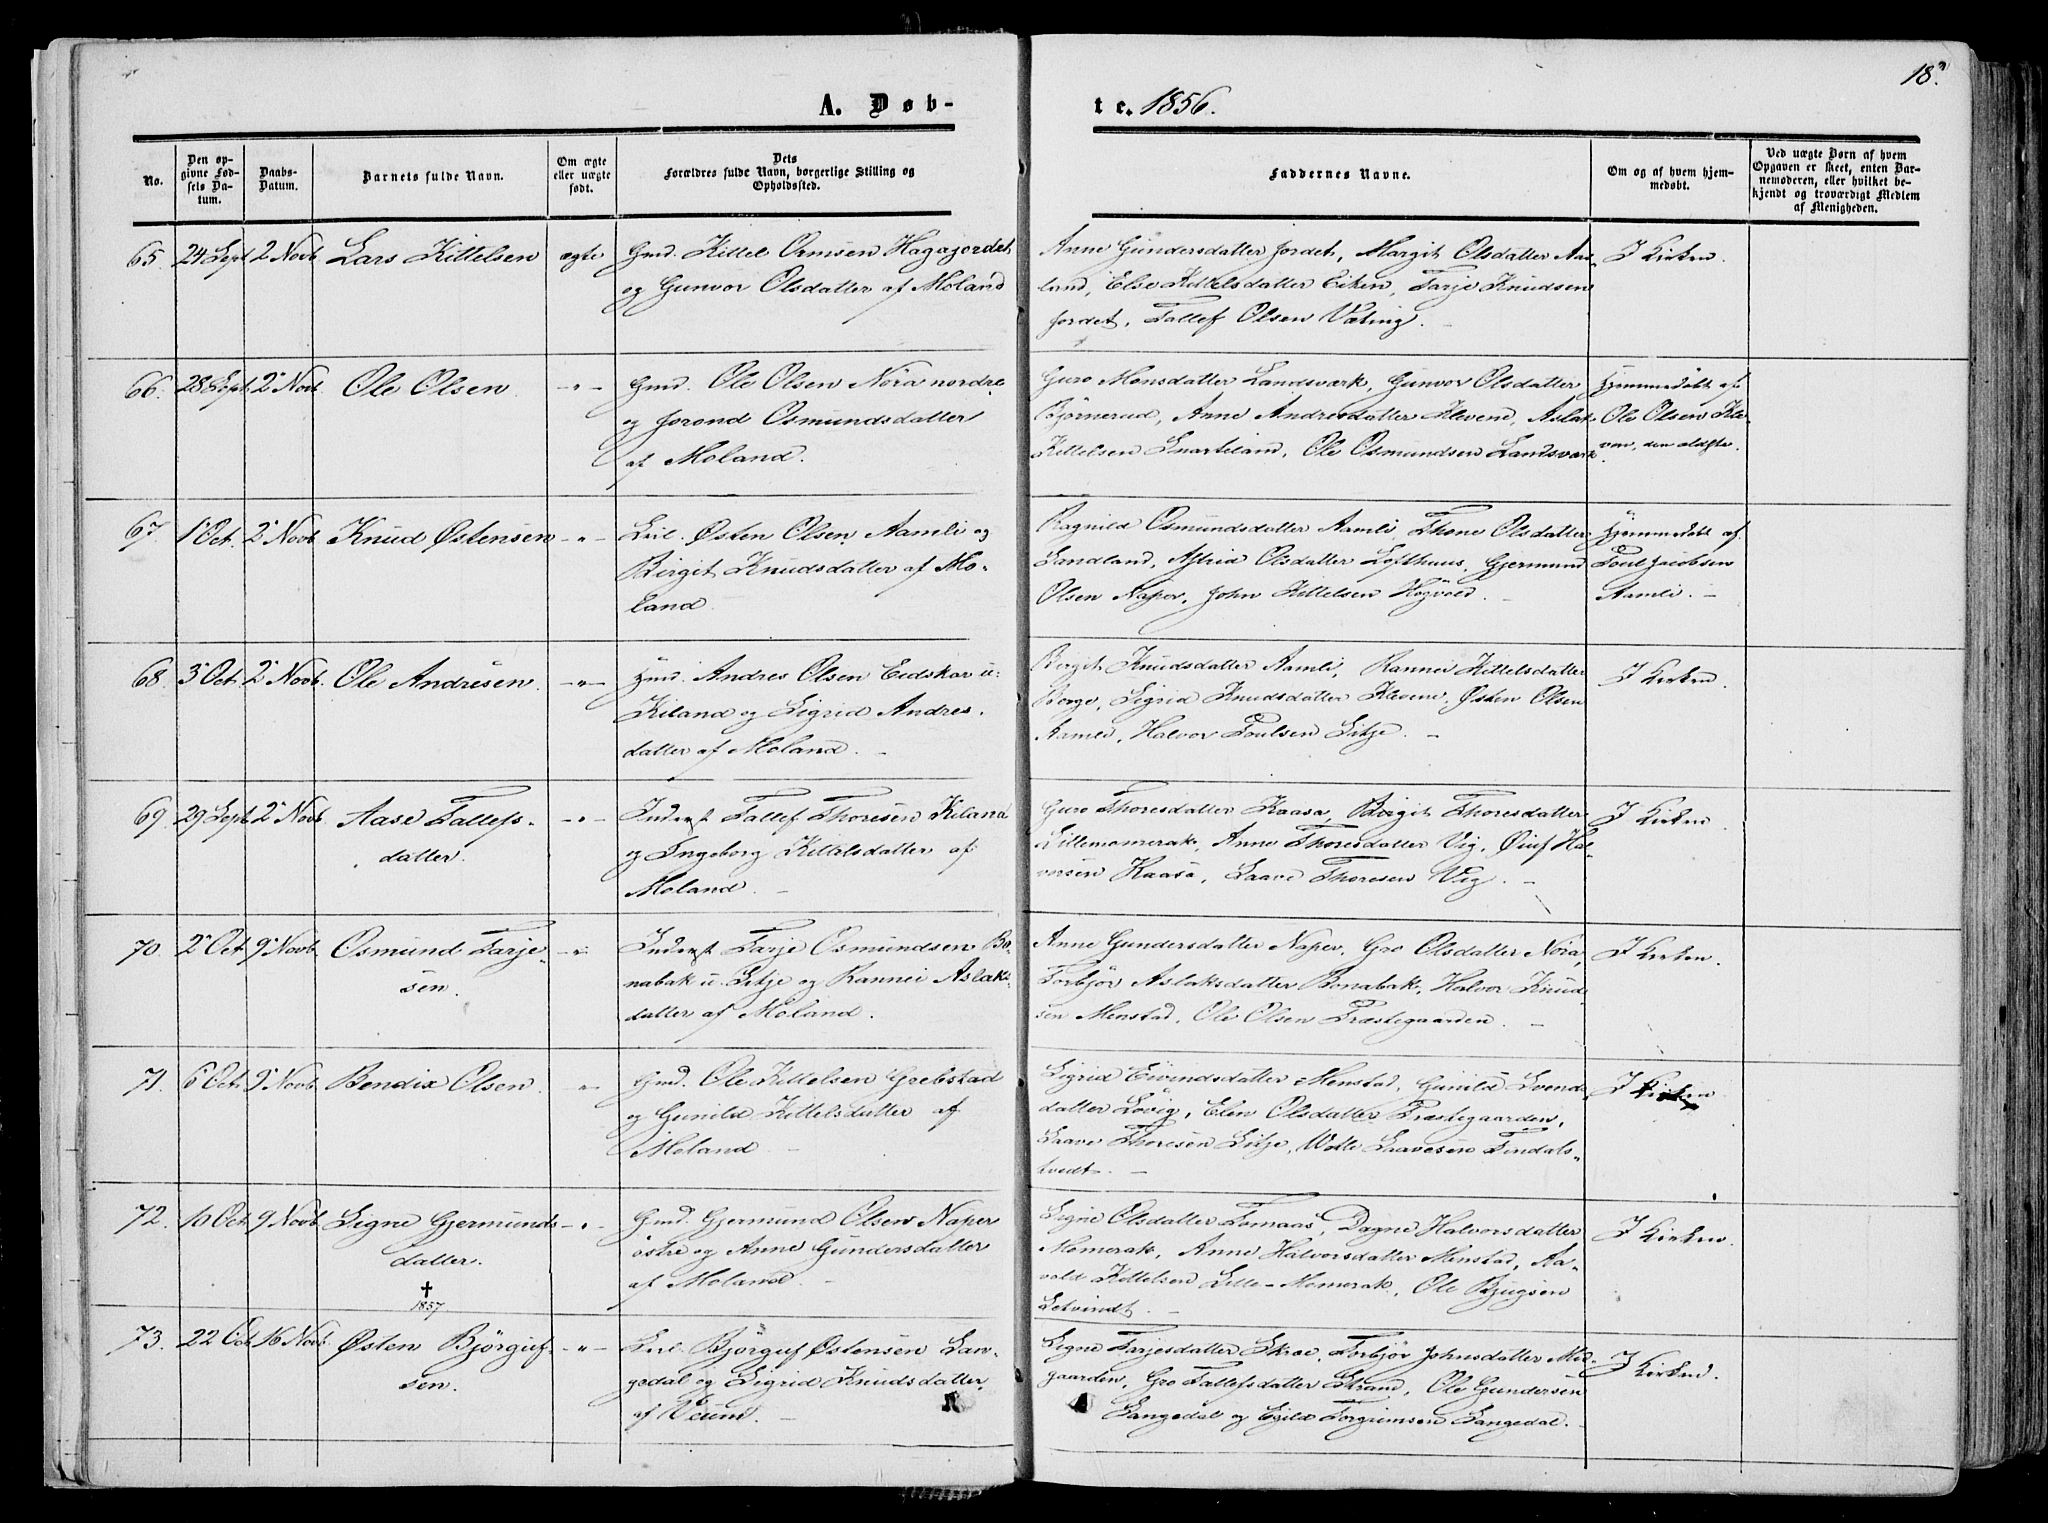 18.
A. Døb-
te. 1856.
No.
Den op-
givne Fød-
sels Da-
tum.
Daabs-
Datum.
Barnets fulde Navn.
Om ægte
eller uægte
født.
Dets
Forældres fulde Navn, borgerlige Stilling og
Opholdssted.
Faddernes Navne.
Om og af hvem hjem-
medøbt.
Ved uægte Børn af hvem
Opgaven er skeet, enten Bar-
nemoderen, eller hvilket be-
kjendt og troværdigt Medlem
af Menigheden.
65. 24 Sept 2 Novb. Lars Kittelsen ægte Gmd. Kittel Ormsen Hagajordet
og Gunvor Olsdatter af Moland
Anne Gundersdatter Jordet, Margit Olsdatter Aas-
land, Else Kittelsdatter Eiken, Tarje Knudsen
Jordet, Tallef Olsen Væting. -
I Kirken.
66. 28 Sept 2 Novb Ole Olsen. -"- Gmd. Ole Olsen Nora nordre
og Jorond Osmundsdatter
af Moland.
Guro Monsdatter Landsværk, Gunvor Olsdatter
Bjørnerud, Anne Andresdatter Klevene, Aslak
Kittelsen Snarteland, Ole Osmundsen Landsværk
Hjemmedøbt af
Ole Olsen Kle-
ven, den ældste.
67. 1 Oct. 2 Novb Knud Østensen -"- Leil. Østen Olsen Aamli og
Birgit Knudsdatter af Mo-
land.
Ragnild Osmundsdatter Aamli, Thone Olsdatter
Sandland, Astrid Olsdatter Lofthuus, Gjermund
Olsen Naper, John Kittelsen Høgvold. -
Hjemmedøbt af
Poul Jacobsen
Aamli. -
68. 3 Oct. 2 Novb. Ole Andresen. -"- Hmd. Andres Olsen Eidskar u:
Kiland og Sigrid Andres-
datter af Moland. -
Bergit Knudsdatter Aamli, Rannei Kittelsdatter
Berge, Sigrid Knudsdatter Klevene, Østen Olsen
Aamli, Halvor Poulsen Sitje. -
I Kirken.
69. 29 Sept. 2 Novb. Aase Tallefs-
datter. -"- Inderst Tallef Thoresen Kiland
og Ingeborg Kittelsdatter af
Moland. -
Guro Thoresdatter Kaasa, Birgit Thoresdatter
Lillemomrak, Anne Thoresdatter Vig, Øiuf Hal-
vorsen Kaasa, Saave Thoresen Vig. -
I Kirken.
70. 2 Oct. 9 Novb. Osmund Tarje-
sen. -"- Inderst Tarje Osmundsen Bo-
nabak u. Sitje og Rannei Aslaks-
datter af Moland.
Anne Gundersdatter Naper, Gro Olsdatter Nora,
Torbjør Aslaksdatter Bonabak, Halvor Knud-
sen Menstad, Ole Olsen Præstegaarden. -
I Kirken.
71. 6 Oct. 9 Novb. Bendix Olsen. -"- Gmd. Ole Kittelsen Grebstad
og Gunild Kittelsdatter af
Moland. -
Sigrid Eivindsdatter Menstad, Gunild Svends-
datter Løvig, Elen Olsdatter Præstegaarden,
Saave Thoresen Sitje, Wetle Saavesen Tindals-
tvedt. -
I Kirken
72. 10 Oct. 9 Novb. Signe Gjermunds-
datter.
✝
1857
-"- Gmd. Gjermund Olsen Naper
østre og Anne Gundersdatter
af Moland. -
Signe Olsdatter Tomaas, Dagne Halvorsdatter
Momrak, Anne Halvorsdatter Menstad, Aa-
vald Kittelsen Lille-Momrak, Ole Bjugsen
Setvindt. -
I Kirken.
73. 22 Oct 16 Novb. Østen Bjørguf-
sen. -"- Leil. Bjørguf Østensen Lan-
gedal og Sigrid Knudsdatter,
af Veum. -
Signe Tarjesdatter Skree, Torbjør Johnsdatter Mid-
gaarden, Gro Tallefsdatter Strand, Ole Gundersen
Langedal og Egild Torgrimsen Langedal.
I Kirken.